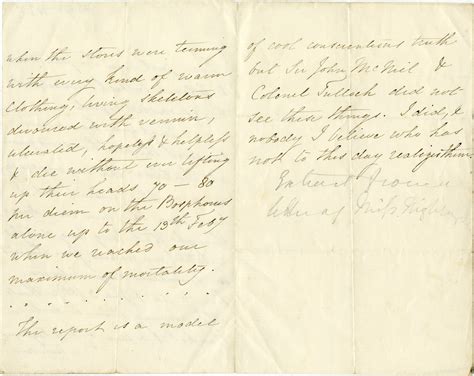 when the stores were teeming
with every kind of warm
Clothing, living skeletons
devoured with vermin,
ulcerated, hopeless & helpless
& die without ever lifting
up their heads 70 – 80
per diem on the Bosphorus
alone up to the 13th Feby
when we reached our
maximum of mortality.
. . . . . . . .
The report is a model
of cool conscientious truth
but Sir John McNeil &
Colonel Tulloch did not
see these things. I did, &
nobody I believe who has
not to this day realizes them.
Extract from
letter of Miss Nightin